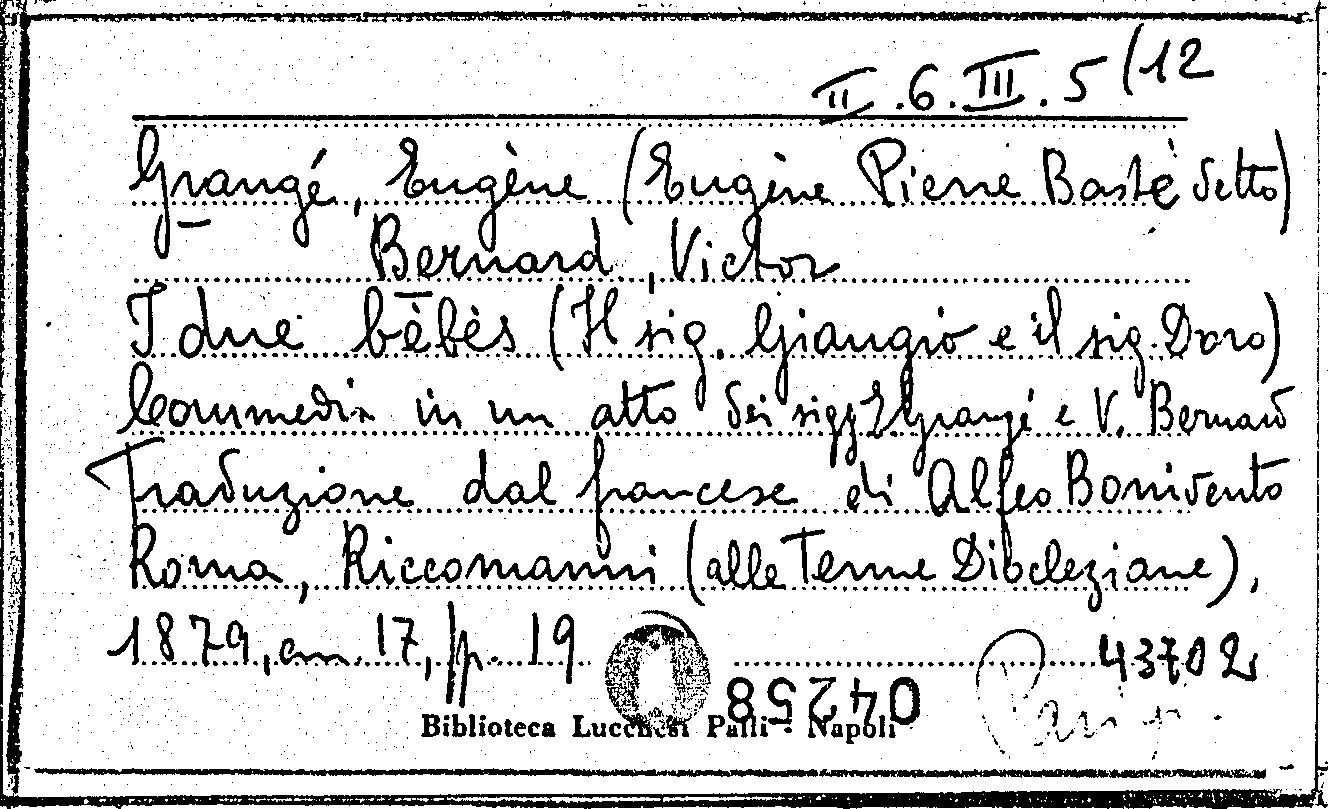 II.6.III.5(12
Grangé, Eugène (Eugène Pierre Basté detto)
Bernard, Victor
I due bébès (Il sig. Giangio e il sig. Doro)
Commedia in un atto dei sigg E Grangé e V. Bernard
Traduzione dal francese di Alfeo Bonivento
Roma, Riccomanni (alle Terme Diocleziane),
1879, cm. 17, pp. 19
43702
04258
Biblioteca Lucchesi Palli - Napoli